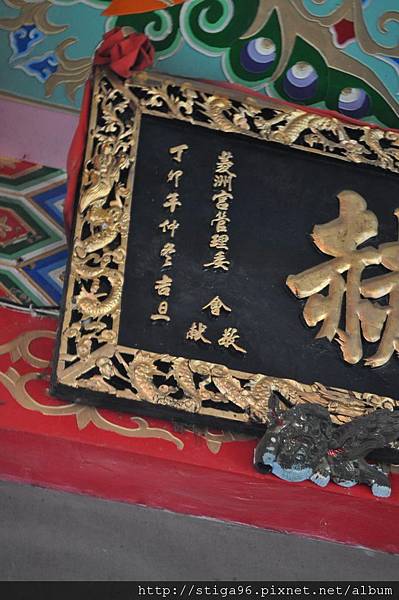 菱洲宮管理委 會 敬獻
丁卯年仲冬吉旦
http://stiga96.pixnet.net/album